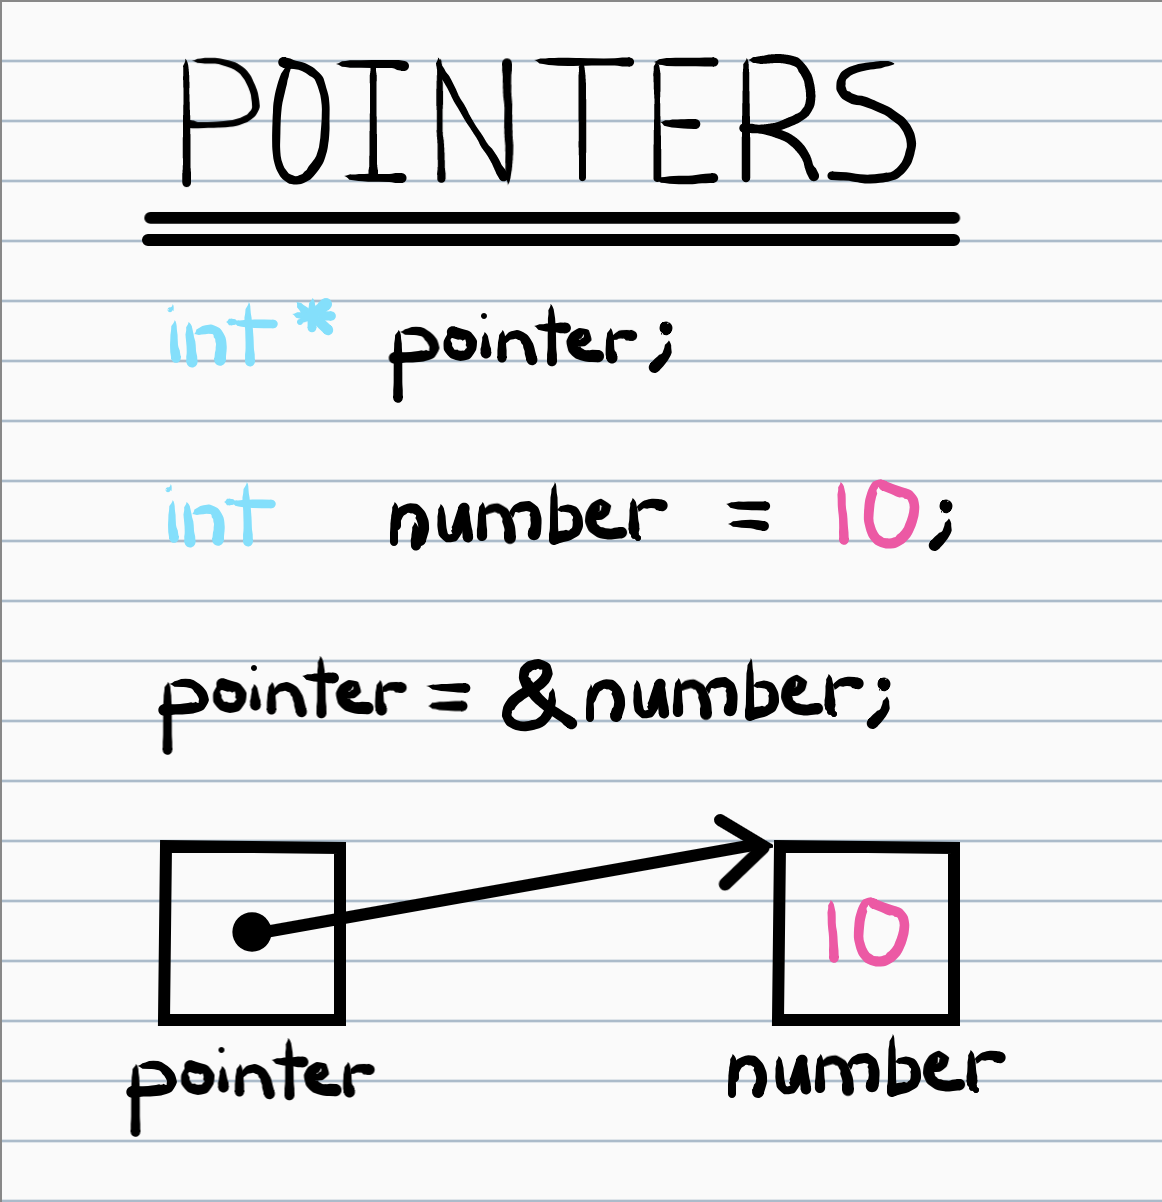 POINTERS
int* pointer;
int number = 10;
pointer = &number;
10
pointer number